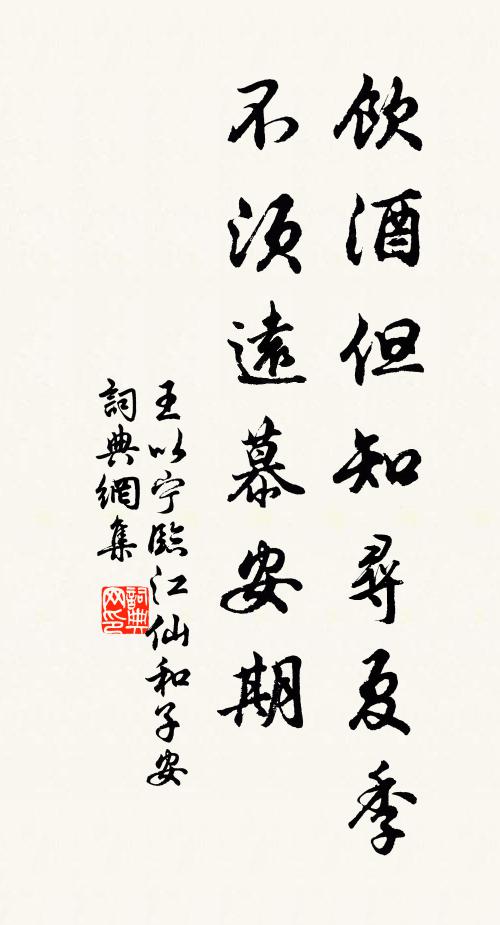 飲酒但知尋夏季
不須遠慕安期
王以寧臨江仙和子安
詞典網集
詞典网印